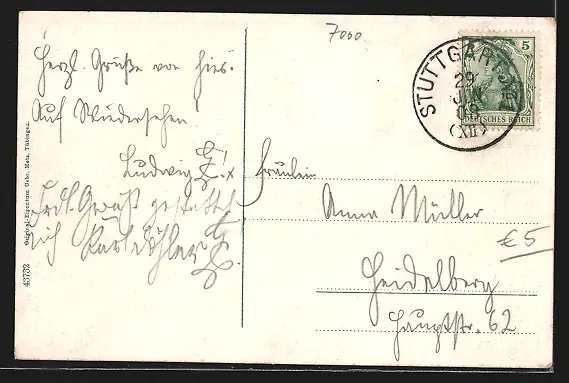 7000
Herzl. Grüße von hier.
Auf Wiedersehen!
Ludwig
Frdl. Gruß gestattet
sich Karl
Original-Eigentum Gebr. Metz, Tübingen.
43733
STUTTGART
29
JAN
09
(XII)
5
DEUTSCHES REICH
Fräulein
Anna Müller
€5
Heidelberg
Hauptstr. 62